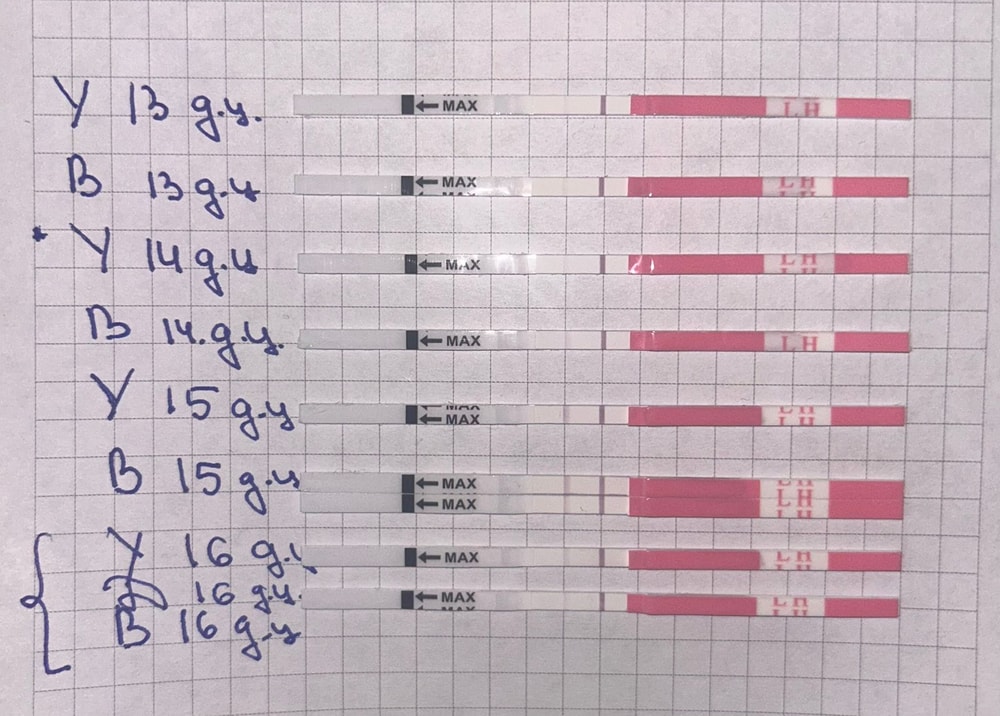 У 13 д.ц. ← MAX LH
В 13 д.ц ← MAX LH
* У 14 д.ц ← MAX LH
В 14. д.ц. ← MAX LH
У 15 д.ц ← MAX LH
В 15 д.ц ← MAX LH
← MAX LH
У 16 д.ц ← MAX LH
Д 16 д.ц. ← MAX LH
В 16 д.ц